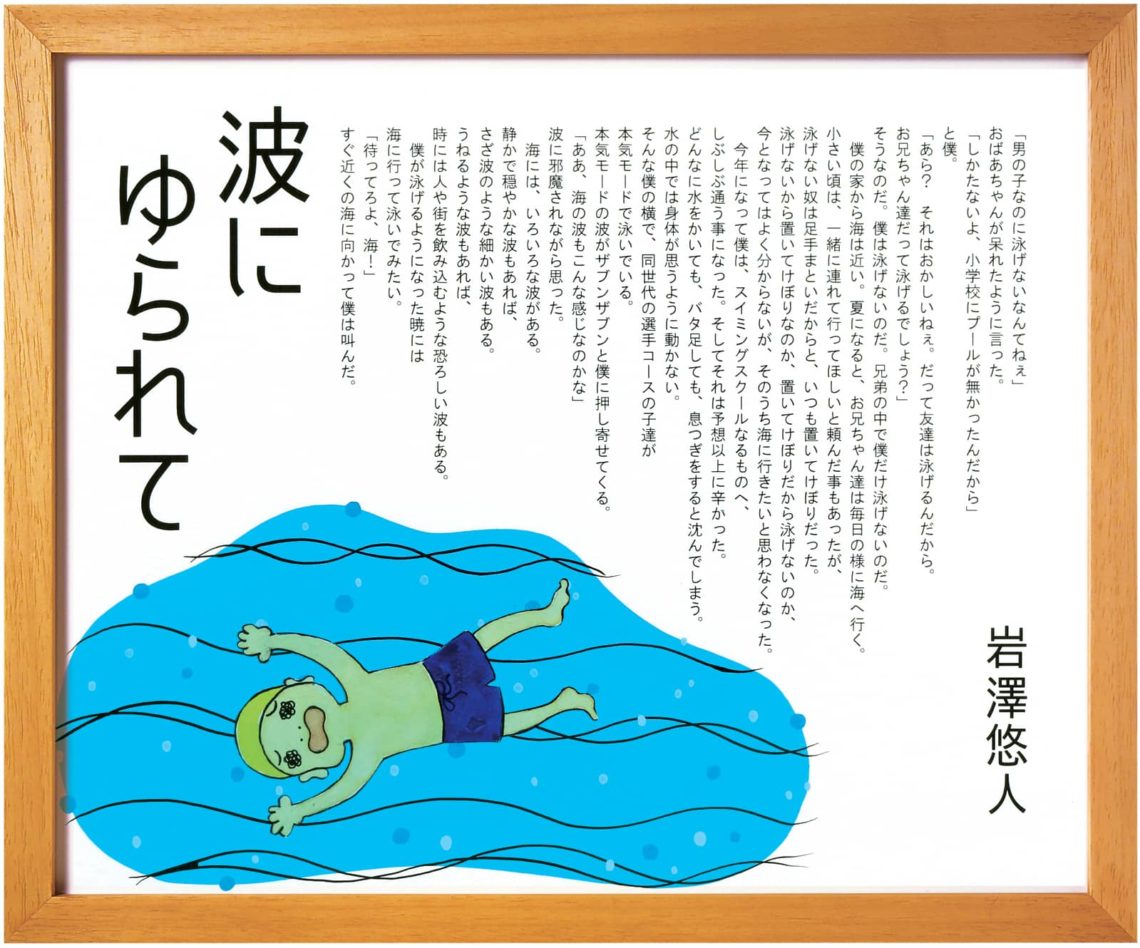 波に
ゆられて
岩澤悠人
「男の子なのに泳げないなんてねぇ」
おばあちゃんが呆れたように言った。
「しかたないよ、小学校にプールが無かったんだから」
と僕。
「あら？　それはおかしいねぇ。だって友達は泳げるんだから。
お兄ちゃん達だって泳げるでしょう？」
そうなのだ。僕は泳げないのだ。兄弟の中で僕だけ泳げないのだ。
　僕の家から海は近い。夏になると、お兄ちゃん達は毎日の様に海へ行く。
小さい頃は、一緒に連れて行ってほしいと頼んだ事もあったが、
泳げない奴は足手まといだからと、いつも置いてけぼりだった。
泳げないから置いてけぼりなのか、置いてけぼりだから泳げないのか、
今となってはよく分からないが、そのうち海に行きたいと思わなくなった。
　今年になって僕は、スイミングスクールなるものへ、
しぶしぶ通う事になった。そしてそれは予想以上に辛かった。
どんなに水をかいても、バタ足しても、息つぎをすると沈んでしまう。
水の中では身体が思うように動かない。
そんな僕の横で、同世代の選手コースの子達が
本気モードで泳いでいる。
本気モードの波がザブンザブンと僕に押し寄せてくる。
「ああ、海の波もこんな感じなのかな」
波に邪魔されながら思った。
　海には、いろいろな波がある。
静かで穏やかな波もあれば、
さざ波のような細かい波もある。
うねるような波もあれば、
時には人や街を飲み込むような恐ろしい波もある。
　僕が泳げるようになった暁には
海に行って泳いでみたい。
「待ってろよ、海！」
すぐ近くの海に向かって僕は叫んだ。